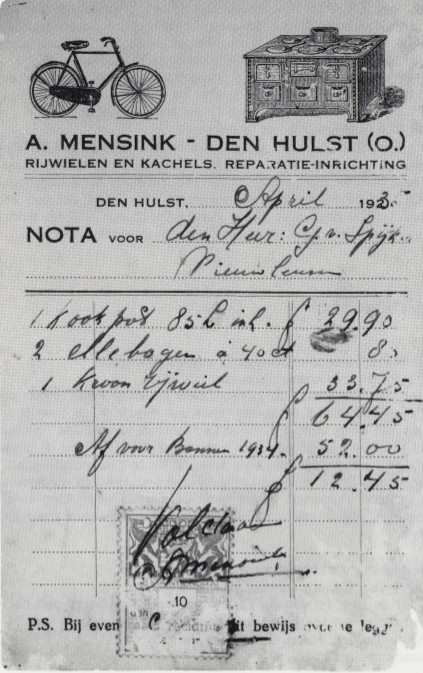 A. MENSINK - DEN HULST (O.)
RIJWIELEN EN KACHELS. REPARATIE-INRICHTING
DEN HULST, April 1935
NOTA VOOR den Heer: C. v. Spijk.
Nieuwleusen
1 Kookpot 85 L inl. ƒ 29.90
2 Ellebogen á 40 ct 80
1 Kroon rijwiel 33.75
ƒ 64.45
Af voor Bonnen 1934. 52.00
ƒ 12.45
Voldaan
AMensink
10
P.S. Bij even dit bewijs